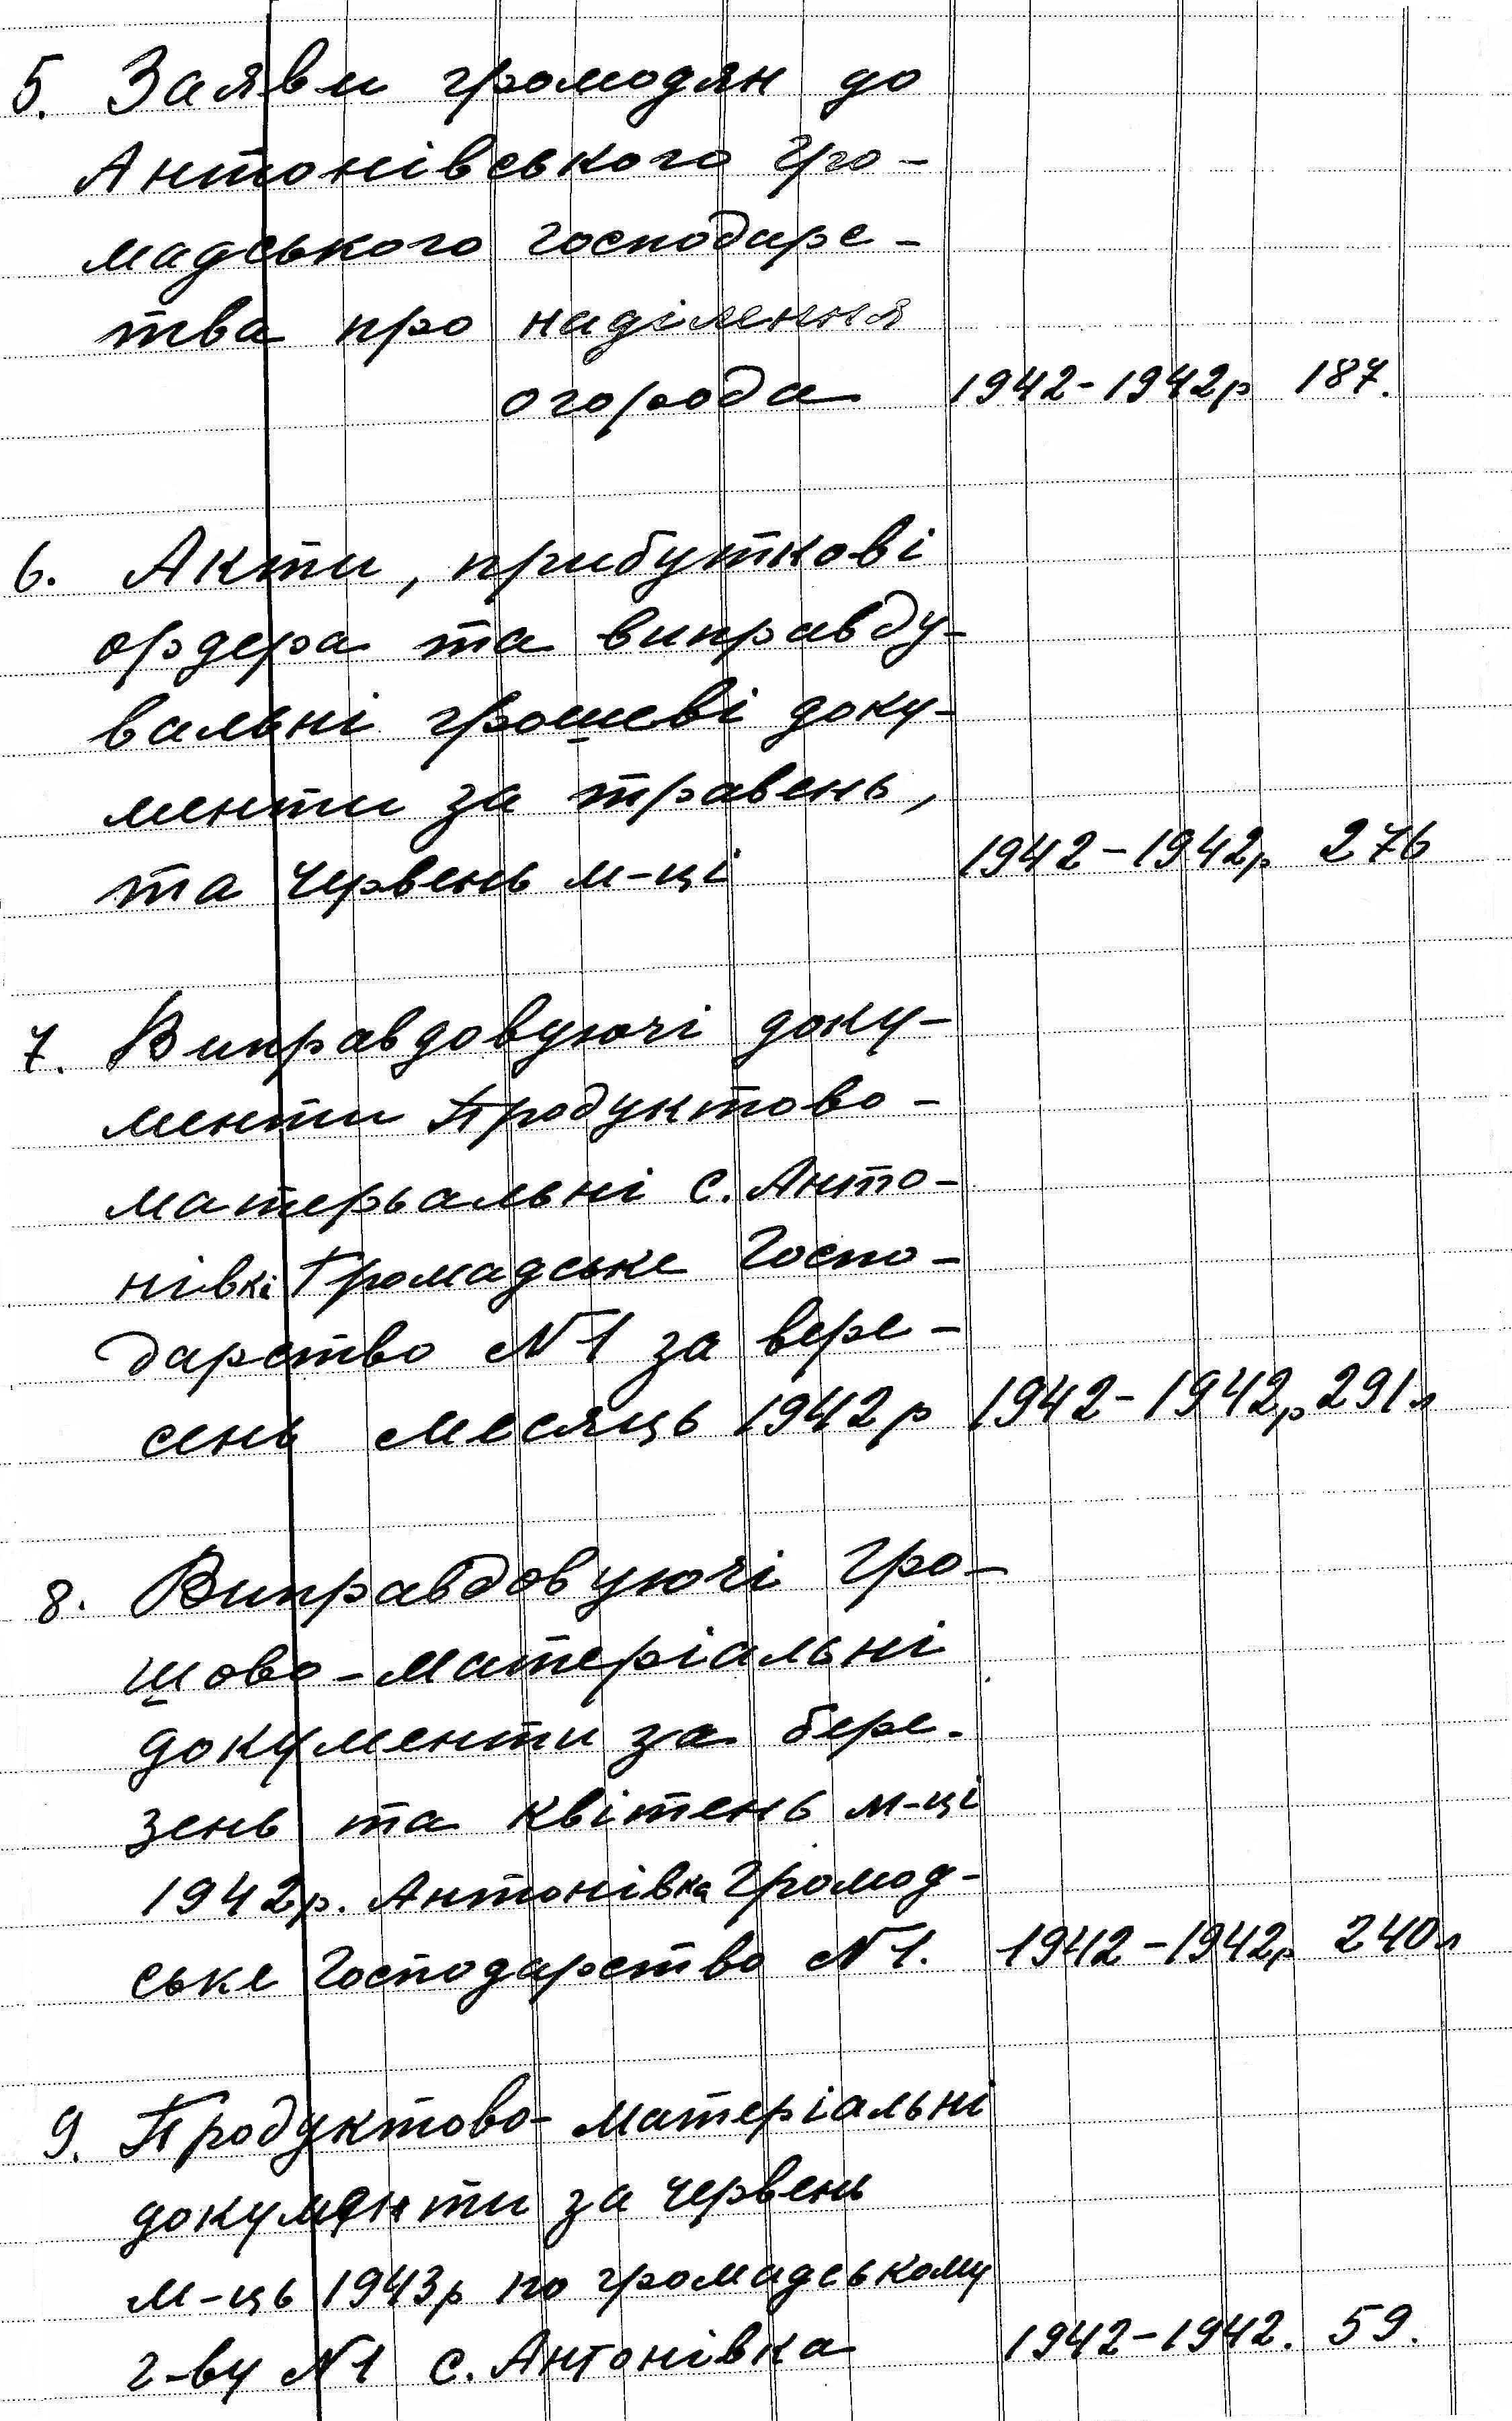 5. Заяви громодян до
Антонівського гро-
мадського господарс-
тва про наділення
огорода 1942-1942р 187.
6. Акти, прибуткові
ордера та виправду-
вальні грошеві доку-
менти за травень,
та червень м-ці 1942-1942р 276
7. Виправдовуючі доку-
менти Продуктово-
матерьальні с. Анто-
нівкі Громадське Госпо-
дарство №1 за вере-
сень месяць 1942р 1942-1942р 291л
8. Виправдовуючі гро-
шово-матеріальні
документи за бере-
зень та квітень м-ці
1942р. Антонівка Громод-
ське Господарство №1. 1942-1942р 240л
9. Продуктово-матеріальні
документи за червень
м-ць 1943р по громадському
г-ву №1 с. Антонівка 1942-1942. 59.